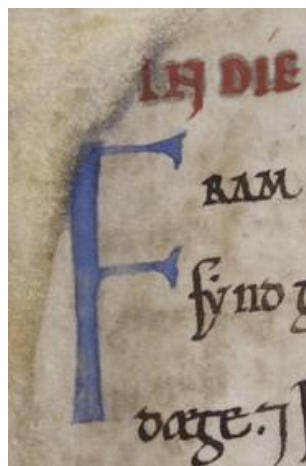 IN DIE
FRAM
synd g
dæge. ⁊